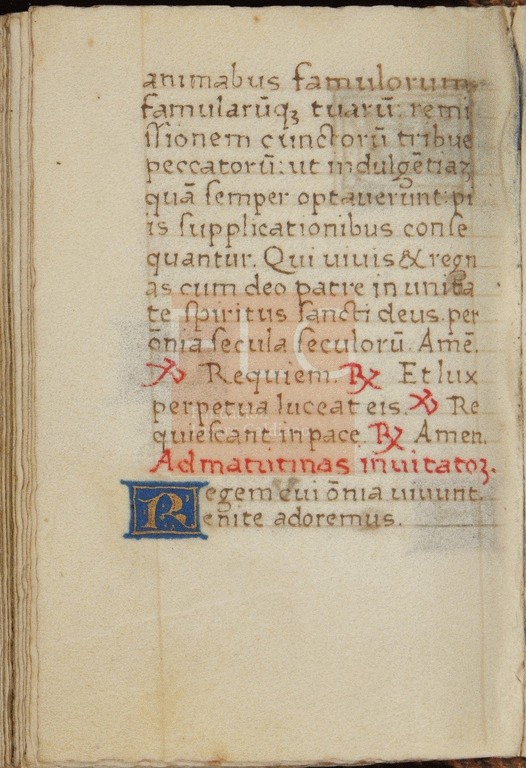 animabus famulorum,
famularūqꝫ tuarū: remi
ſſionem cūnctorū tribue
peccatorū: ut indulgētiaꝫ
quā ſemper optauerunt: pi
is ſupplicationibus conſe
quantur. Qui uiuis & regn
as cum deo patre in unita
te ſpiritus ſancti deus. per
ōnia ſecula ſeculorū. Amē.
℣ Requiem. ℟ Et lux
perpetua luceat eis. ℣ Re
quieſcant in pace. ℟ Amen.
Ad matutinas inuitatoꝝ.
Regem cui ōnia uiuunt.
Uenite adoremus.